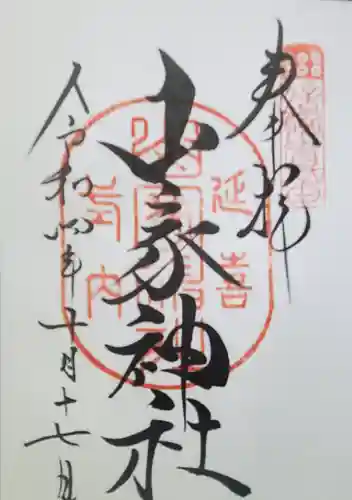 奉拝
山家神社
令和四年十月十七日
延喜
式内